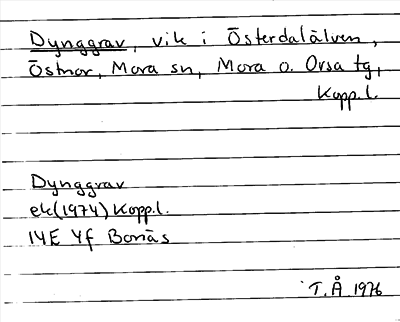 Dynggrav, vik i Österdalälven,
Östnor, Mora sn, Mora o. Orsa tg,
Kopp.l.
Dynggrav
ek(1974) Kopp.l.
14E 4f Bonäs
T.Å. 1976